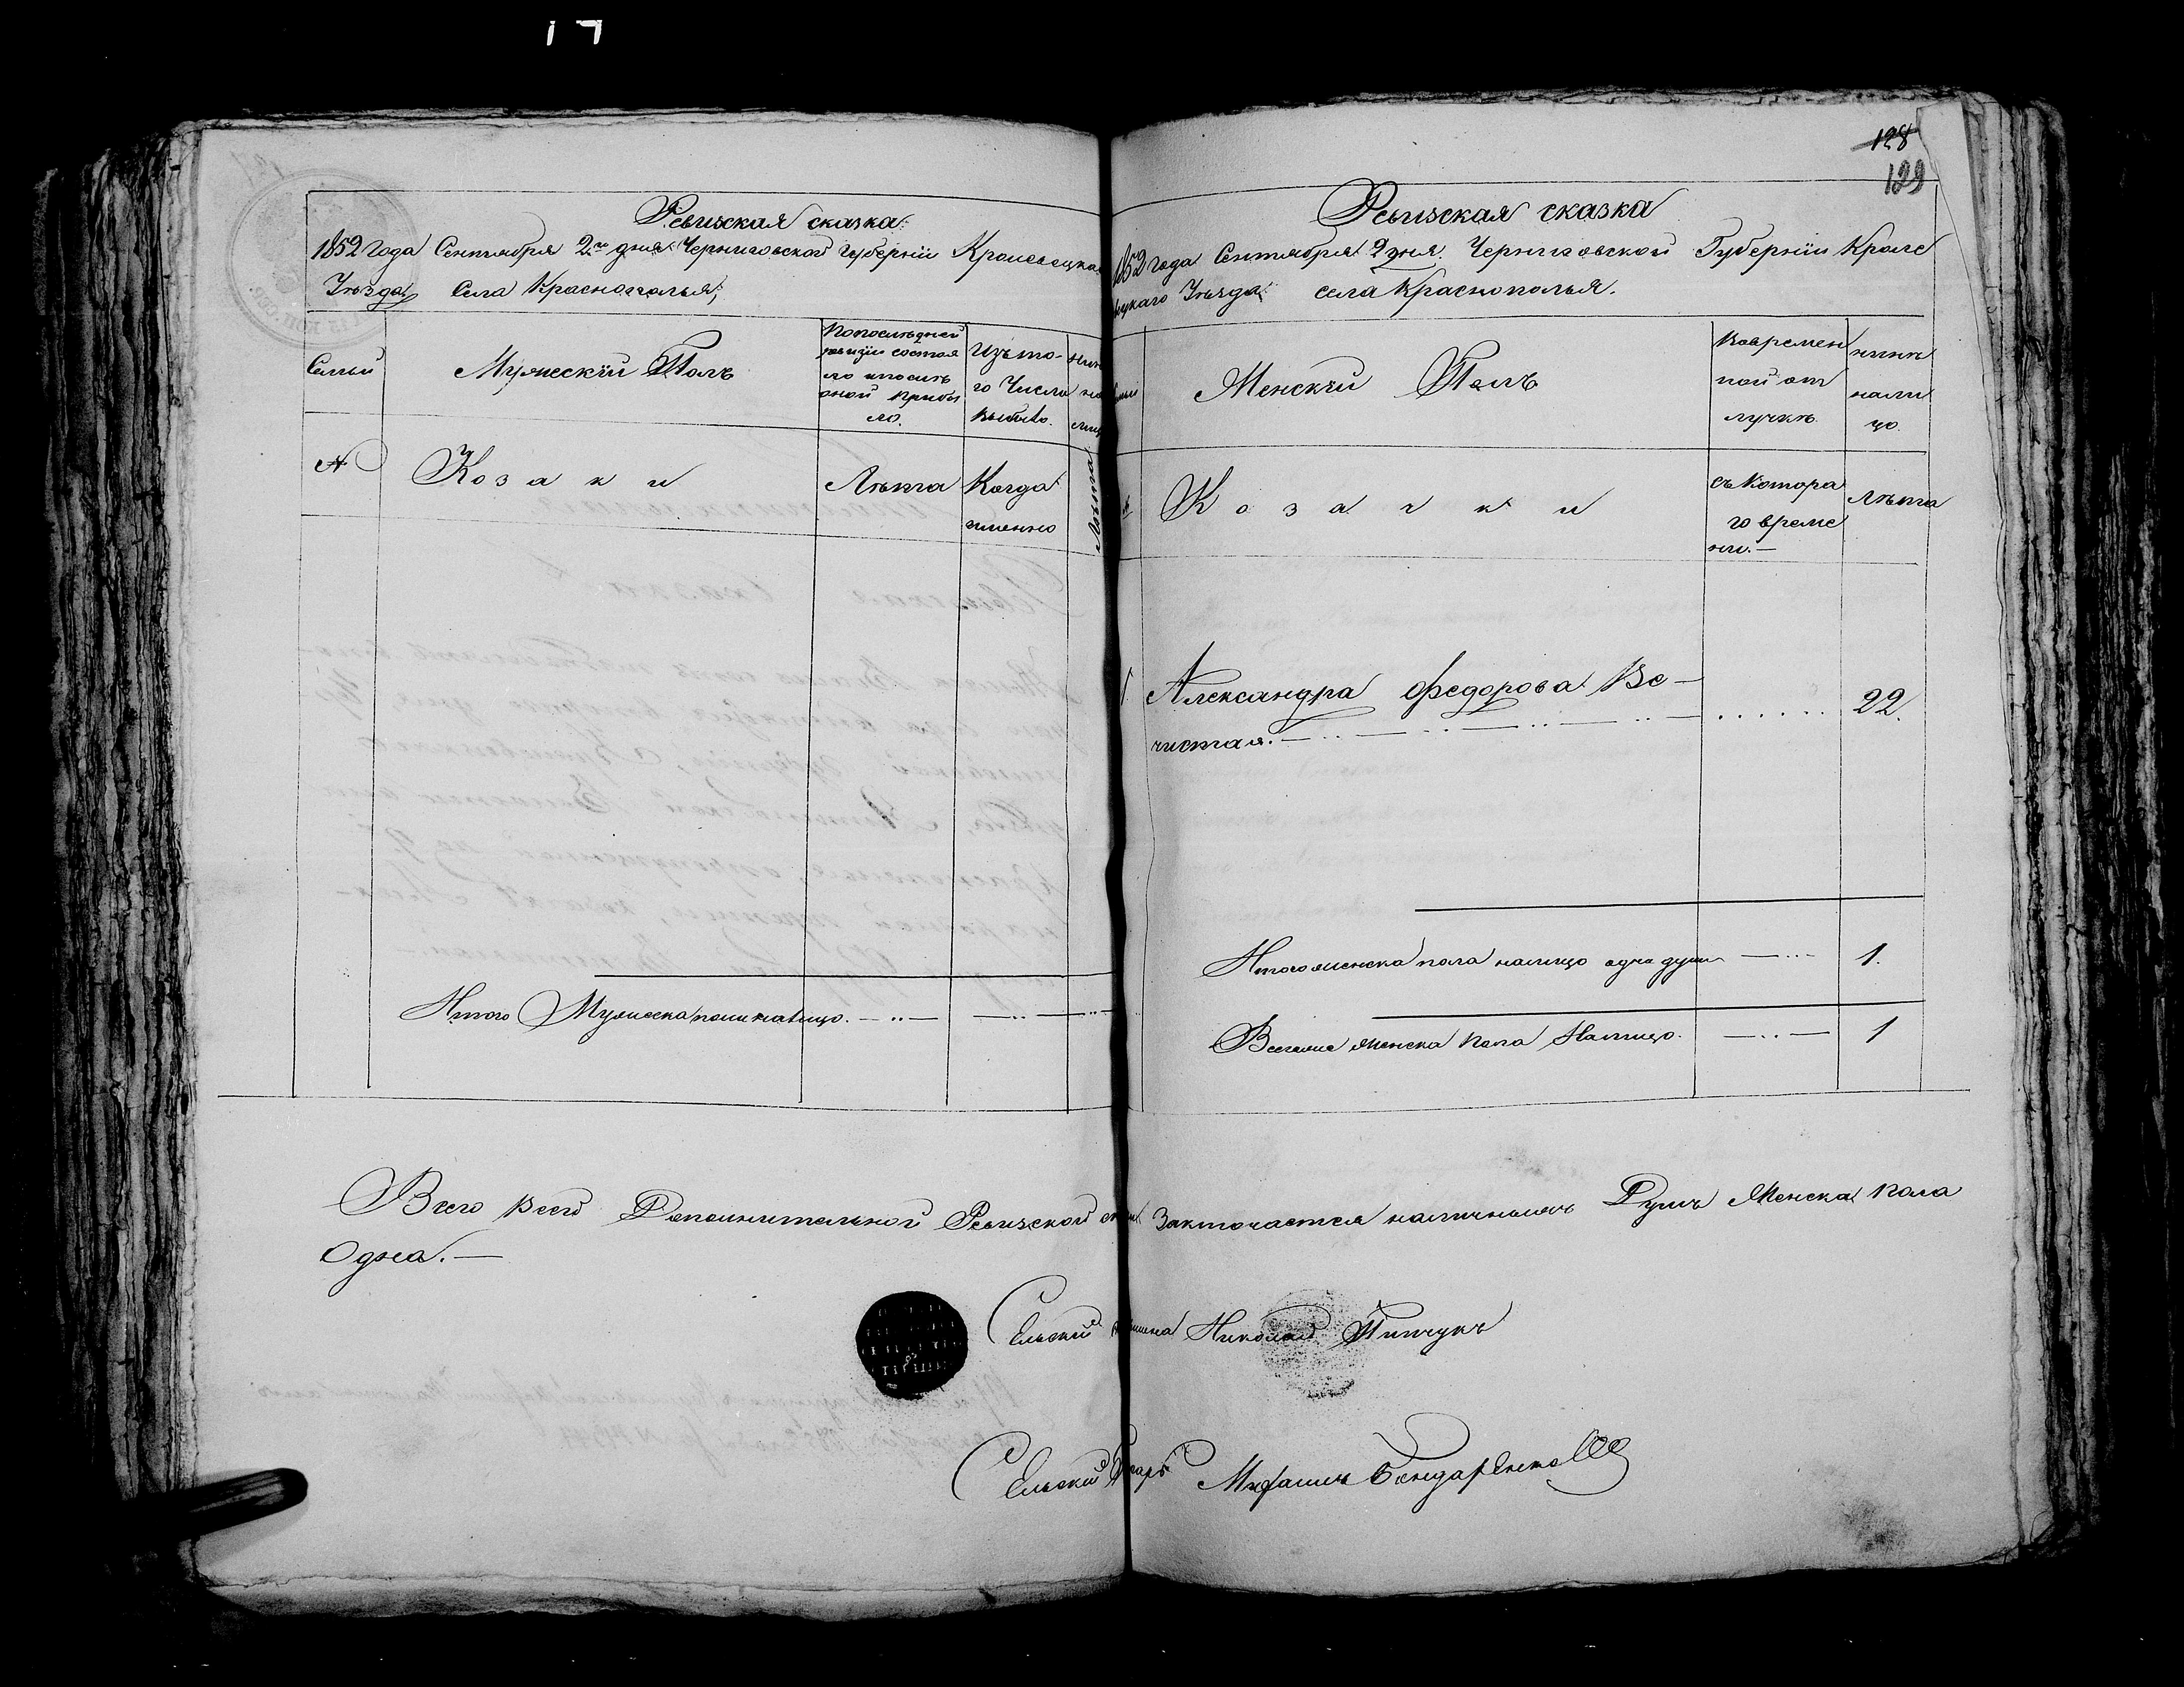 128
129
Ревизская сказка
1852 года Сентября 2го дня Черниговской Губернiи Кролевецкаго
Уѣзда Села Краснополья,
Семьи
Мужескiй Полъ
По последней
ревизiи состоя
ло и после
оной прибы
ло.
Изъ то-
го Числа
выбыло.
№
Козаки
Лѣта
Когда
именно
Лѣта
Итого Мужеска пола налицо.
Ревизская сказка
1852 года Сентября 2 дня Черниговской Губернiи Кроле
вецкаго Уѣзда села Краснополья.
Женскiй Полъ
Во времен
ной от
лучкѣ
нынѣ
нали
цо
№
Козачки
съ котора
го време
ни.
Лѣта
1 Александра Федорова Ве-
чистая. 22.
Итого женска пола налицо одна душа 1.
Всего же женска пола Налицо. 1
Всего в сей Дополнительной Ревизской сказки Заключается наличныхъ Душъ Женска пола
Одна.
Сельский Старшина Николай Пинчукъ
Сельский Писарь Бондаренко